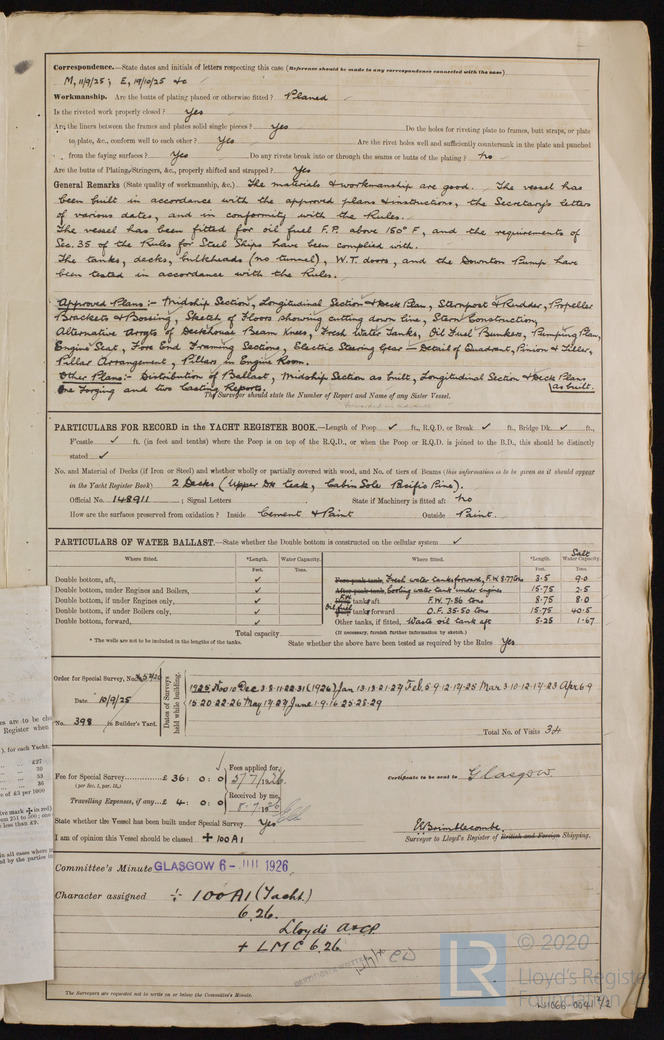 Correspondence.—State dates and initials of letters respecting this case (Reference should be made to any correspondence connected with the case)
M, 11/9/25; E, 19/10/25 &c
Workmanship. Are the butts of plating planed or otherwise fitted? Planed
Is the riveted work properly closed? Yes
Are the liners between the frames and plates solid single pieces? Yes Do the holes for riveting plate to frames, butt straps, or plate
to plate, &c., conform well to each other? Yes Are the rivet holes well and sufficiently countersunk in the plate and punched
from the faying surfaces? Yes Do any rivets break into or through the seams or butts of the plating? No
Are the butts of Plating, Stringers, &c., properly shifted and strapped? Yes
General Remarks (State quality of workmanship, &c.) The materials & workmanship are good. The vessel has
been built in accordance with the approved plans & instructions, the Secretary's letters
of various dates, and in conformity with the Rules.
The vessel has been fitted for oil fuel F.P. above 150° F, and the requirements of
Sec. 35 of the Rules for Steel Ships have been complied with.
The tanks, decks, bulkheads (no tunnel), W.T. doors, and the Downton Pump have
been tested in accordance with the Rules.
Approved Plans:- Midship Section, Longitudinal Section & Deck Plan, Sternpost & Rudder, Propeller
Brackets & Bossing, Sketch of Floors showing cutting down line, Stern Construction,
Alternative Arrgts of Deckhouse Beam Knees, Fresh Water Tanks, Oil Fuel Bunkers, Pumping Plan,
Engine Seat, Fore End Framing Sections, Electric Steering Gear — Detail of Quadrant, Pinion & Tiller,
Pillar Arrangement, Pillars in Engine Room.
Other Plans:- Distribution of Ballast, Midship Section as built, Longitudinal Section & Deck Plans
as built.
One Forging and two Casting Reports.
The Surveyor should state the Number of Report and Name of any Sister Vessel.
PARTICULARS FOR RECORD in the YACHT REGISTER BOOK.—Length of Poop ✓ ft., R.Q.D. or Break ✓ ft., Bridge Dk. ✓ ft.,
F'castle ✓ ft. (in feet and tenths) where the Poop is on top of the R.Q.D., or when the Poop or R.Q.D. is joined to the B.D., this should be distinctly
stated ✓
No. and Material of Decks (if Iron or Steel) and whether wholly or partially covered with wood, and No. of tiers of Beams (this information is to be given as it should appear
in the Yacht Register Book) 2 Decks (Upper Dk teak, Cabin Sole Pacific Pine).
Official No. 148911; Signal Letters State if Machinery is fitted aft No
How are the surfaces preserved from oxidation? Inside Cement & Paint Outside Paint.
PARTICULARS OF WATER BALLAST.—State whether the Double bottom is constructed on the cellular system ✓
Where fitted. *Length. Water Capacity. Where fitted. *Length. Salt Water Capacity.
Feet. Tons. Feet. Tons.
Double bottom, aft, ✓ Fore peak tank, Fresh water tanks forward, F.W. 8.77 tons 3.5 9.0
Double bottom, under Engines and Boilers, ✓ After peak tank, Cooling water tank under engines 15.75 2.5
Double bottom, if under Engines only, ✓ F.W. tank, aft F.W. 7.86 tons 8.75 8.0
Double bottom, if under Boilers only, ✓ Oil fuel tank, forward O.F. 35.50 tons 15.75 40.5
Double bottom, forward, ✓ Other tanks, if fitted, Waste oil tank aft 5.25 1.67
Total capacity (If necessary, furnish further information by sketch.)
* The wells are not to be included in the lengths of the tanks. State whether the above have been tested as required by the Rules Yes
Order for Special Survey, No.
Date 10/9/25
No. 398 in Builder's Yard.
Dates of Surveys held while building.
1925 Nov 10 Dec 3.8.11.22.31 (1926) Jan 13.18.21.27 Feb. 5.9.12.17.25 Mar 3.10.12.17.23 Apr 6.9
15.20.22.26 May 17.27 June 1.9.16.25.28.29
Total No. of Visits 34
Fee for Special Survey £ 36 : 0 : 0
(per Sec. 1, par. 15,)
Travelling Expenses, if any £ 4 : 0 : 0
Fees applied for,
5/7/1926.
Received by me,
8.7.1926
Certificate to be sent to Glasgow
State whether the Vessel has been built under Special Survey Yes
I am of opinion this Vessel should be classed ✠ 100A1
Surveyor to Lloyd's Register of British and Foreign Shipping.
Committee's Minute GLASGOW 6 - JUL 1926
Character assigned ✠ 100A1 (Yacht.)
6.26.
Lloyd's A&CP.
+ LMC 6.26
CERTIFICATE WRITTEN
The Surveyors are requested not to write on or below the Committee's Minute.
LR
© 2020
Lloyd's Register
Foundation
W1066-0041 2/2